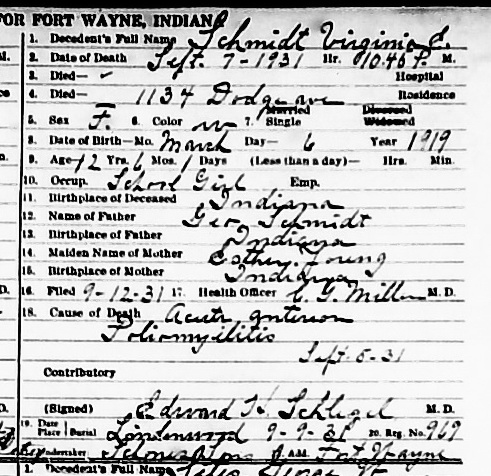 FOR FORT WAYNE, INDIANA
1. Decedent's Full Name Schmidt Virginia E.
2. Date of Death Sept. 7-1931 Hr. 10:45 P. M.
3. Died— ✓ Hospital
4. Died— 1134 Dodge ave Residence
5. Sex F. 6. Color w 7. Married Single Divorced Widowed
8. Date of Birth—Mo. March Day— 6 Year 1919
9. Age 12 Yrs. 6 Mos. 1 Days (Less than a day)— Hrs. Min.
10. Occup. School Girl Emp.
11. Birthplace of Deceased Indiana
12. Name of Father Geo. Schmidt
13. Birthplace of Father Indiana
14. Maiden Name of Mother Esther Young
15. Birthplace of Mother Indiana
16. Filed 9-12-31 17. Health Officer C. G. Miller M. D.
18. Cause of Death Acute anterior
Poliomyelitis
Sept. 5-31
Contributory
(Signed) Edward H. Schlegel M. D.
19. Date Place Burial Lindenwood 9-9-31 20. Reg. No. 969
Undertaker & Sons Ad. Fort Wayne
1. Decedent's Full Name